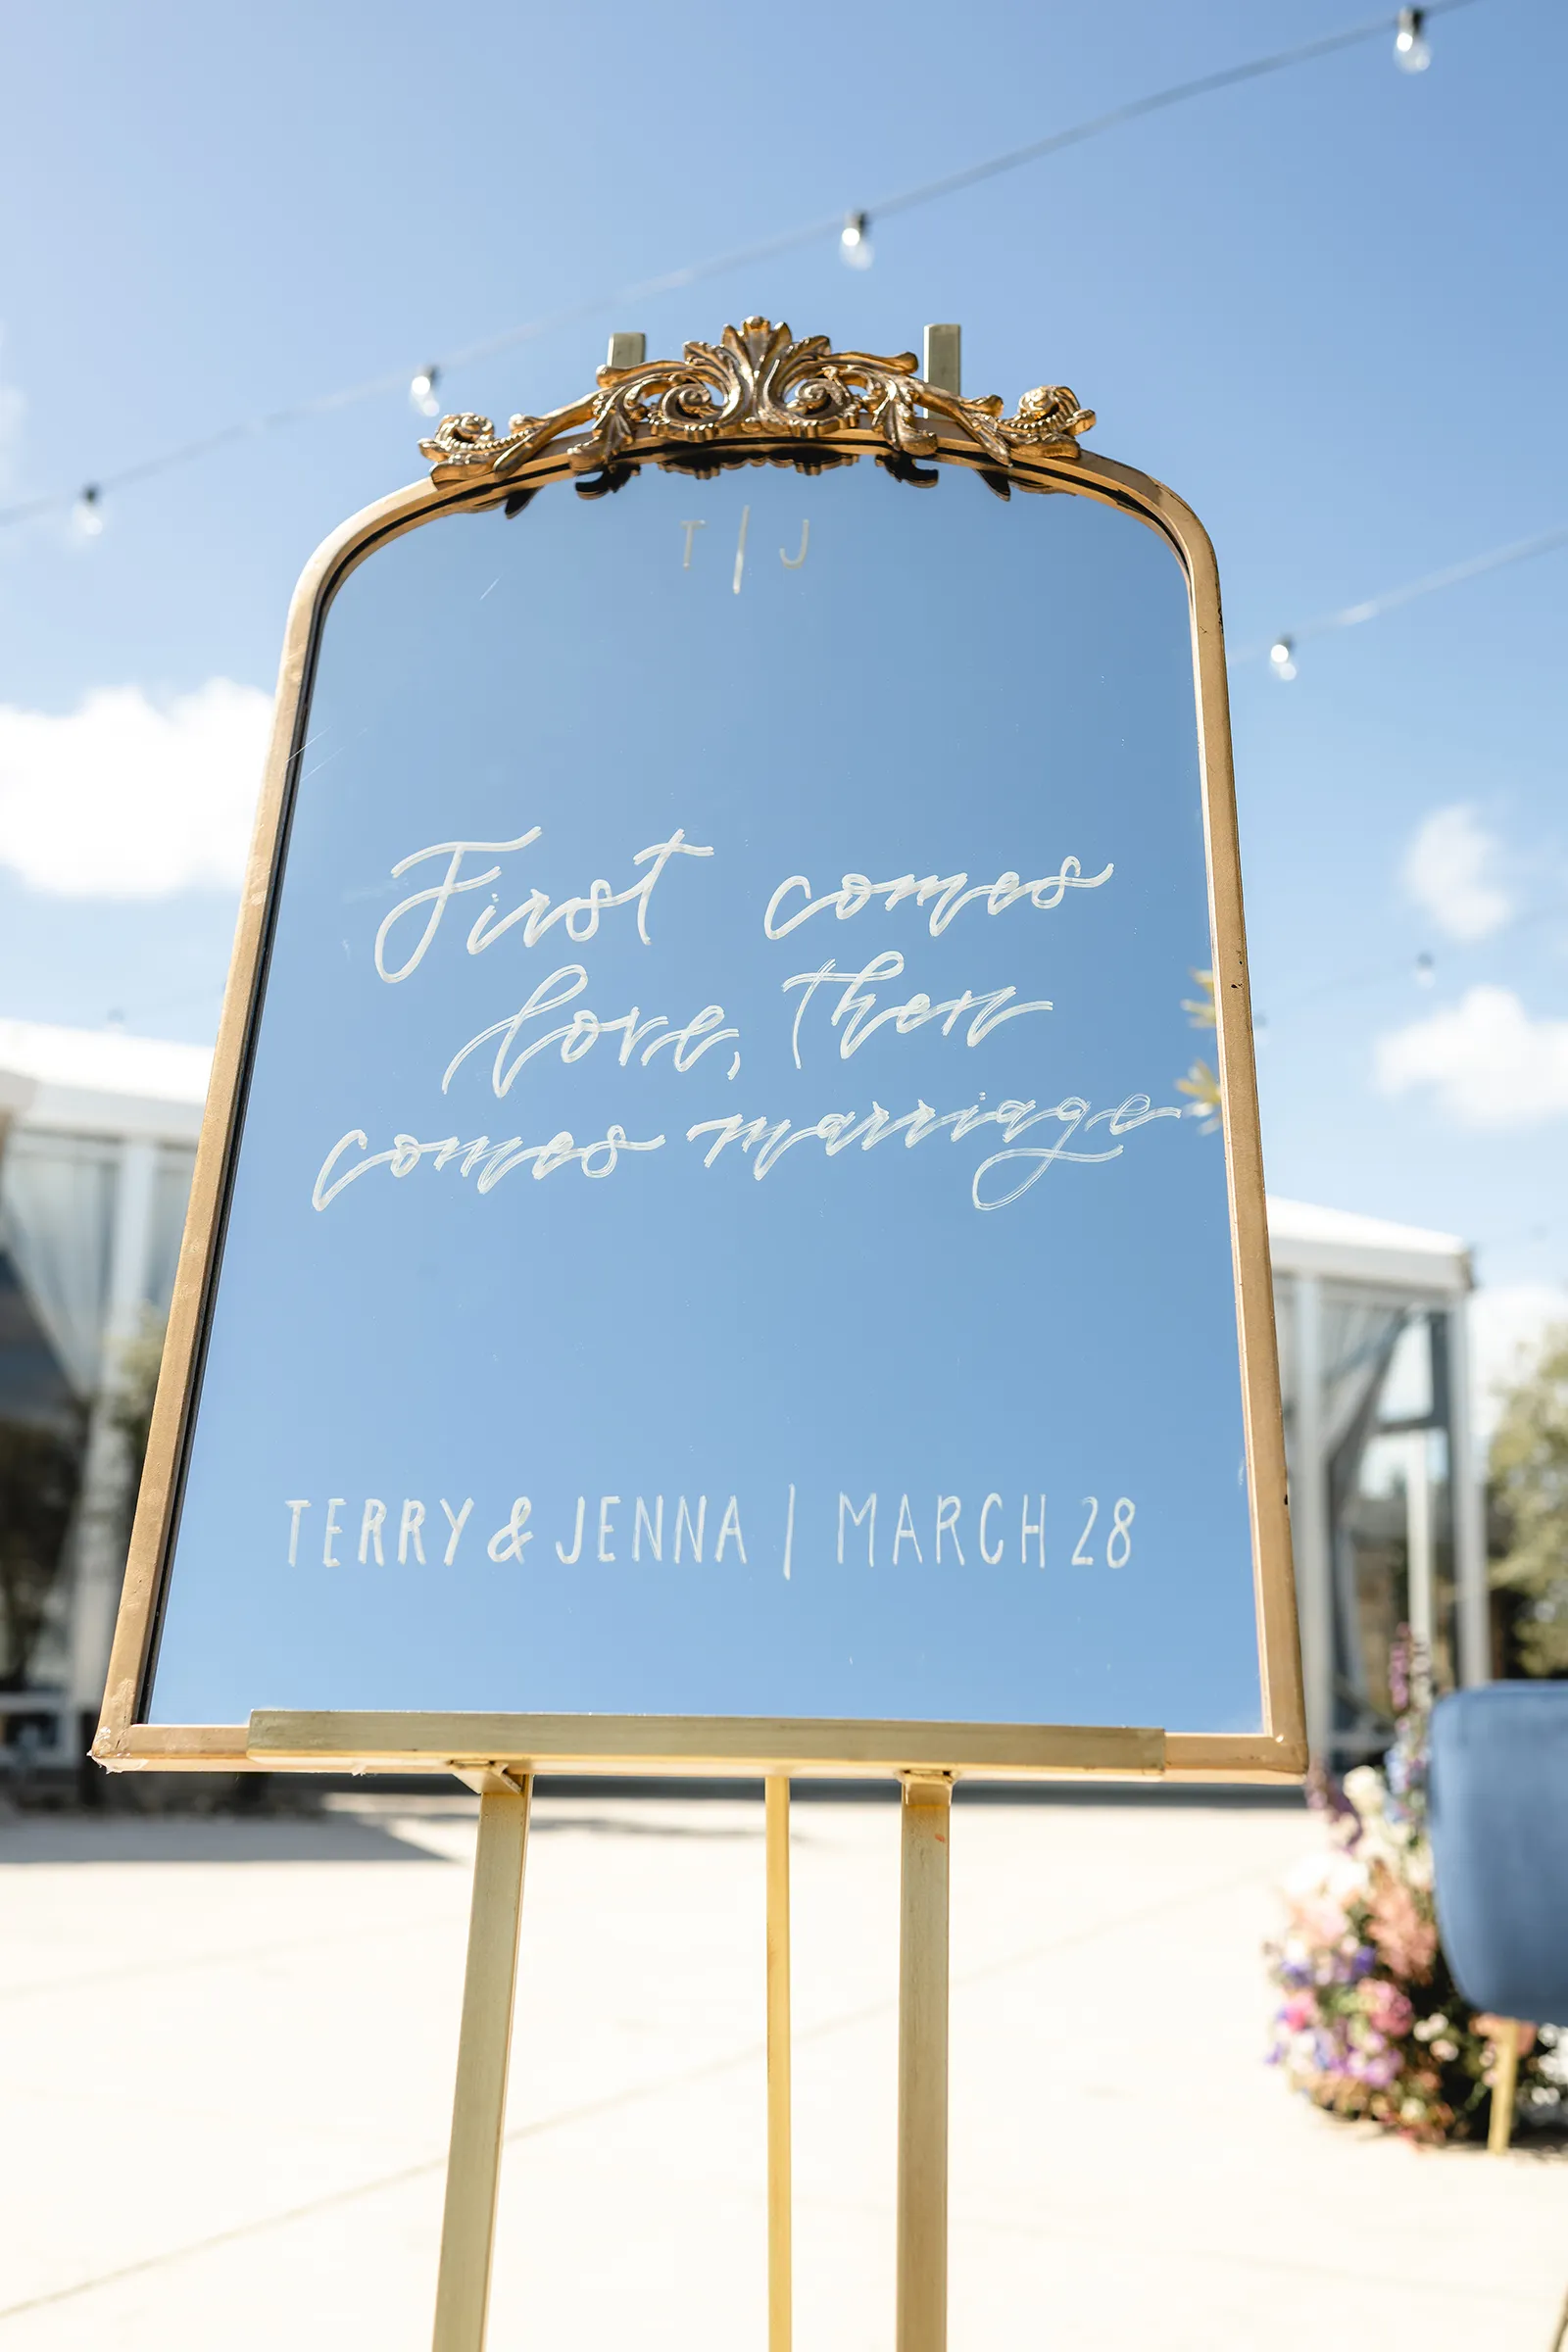 T | J
First comes
love, Then
comes marriage
TERRY & JENNA | MARCH 28